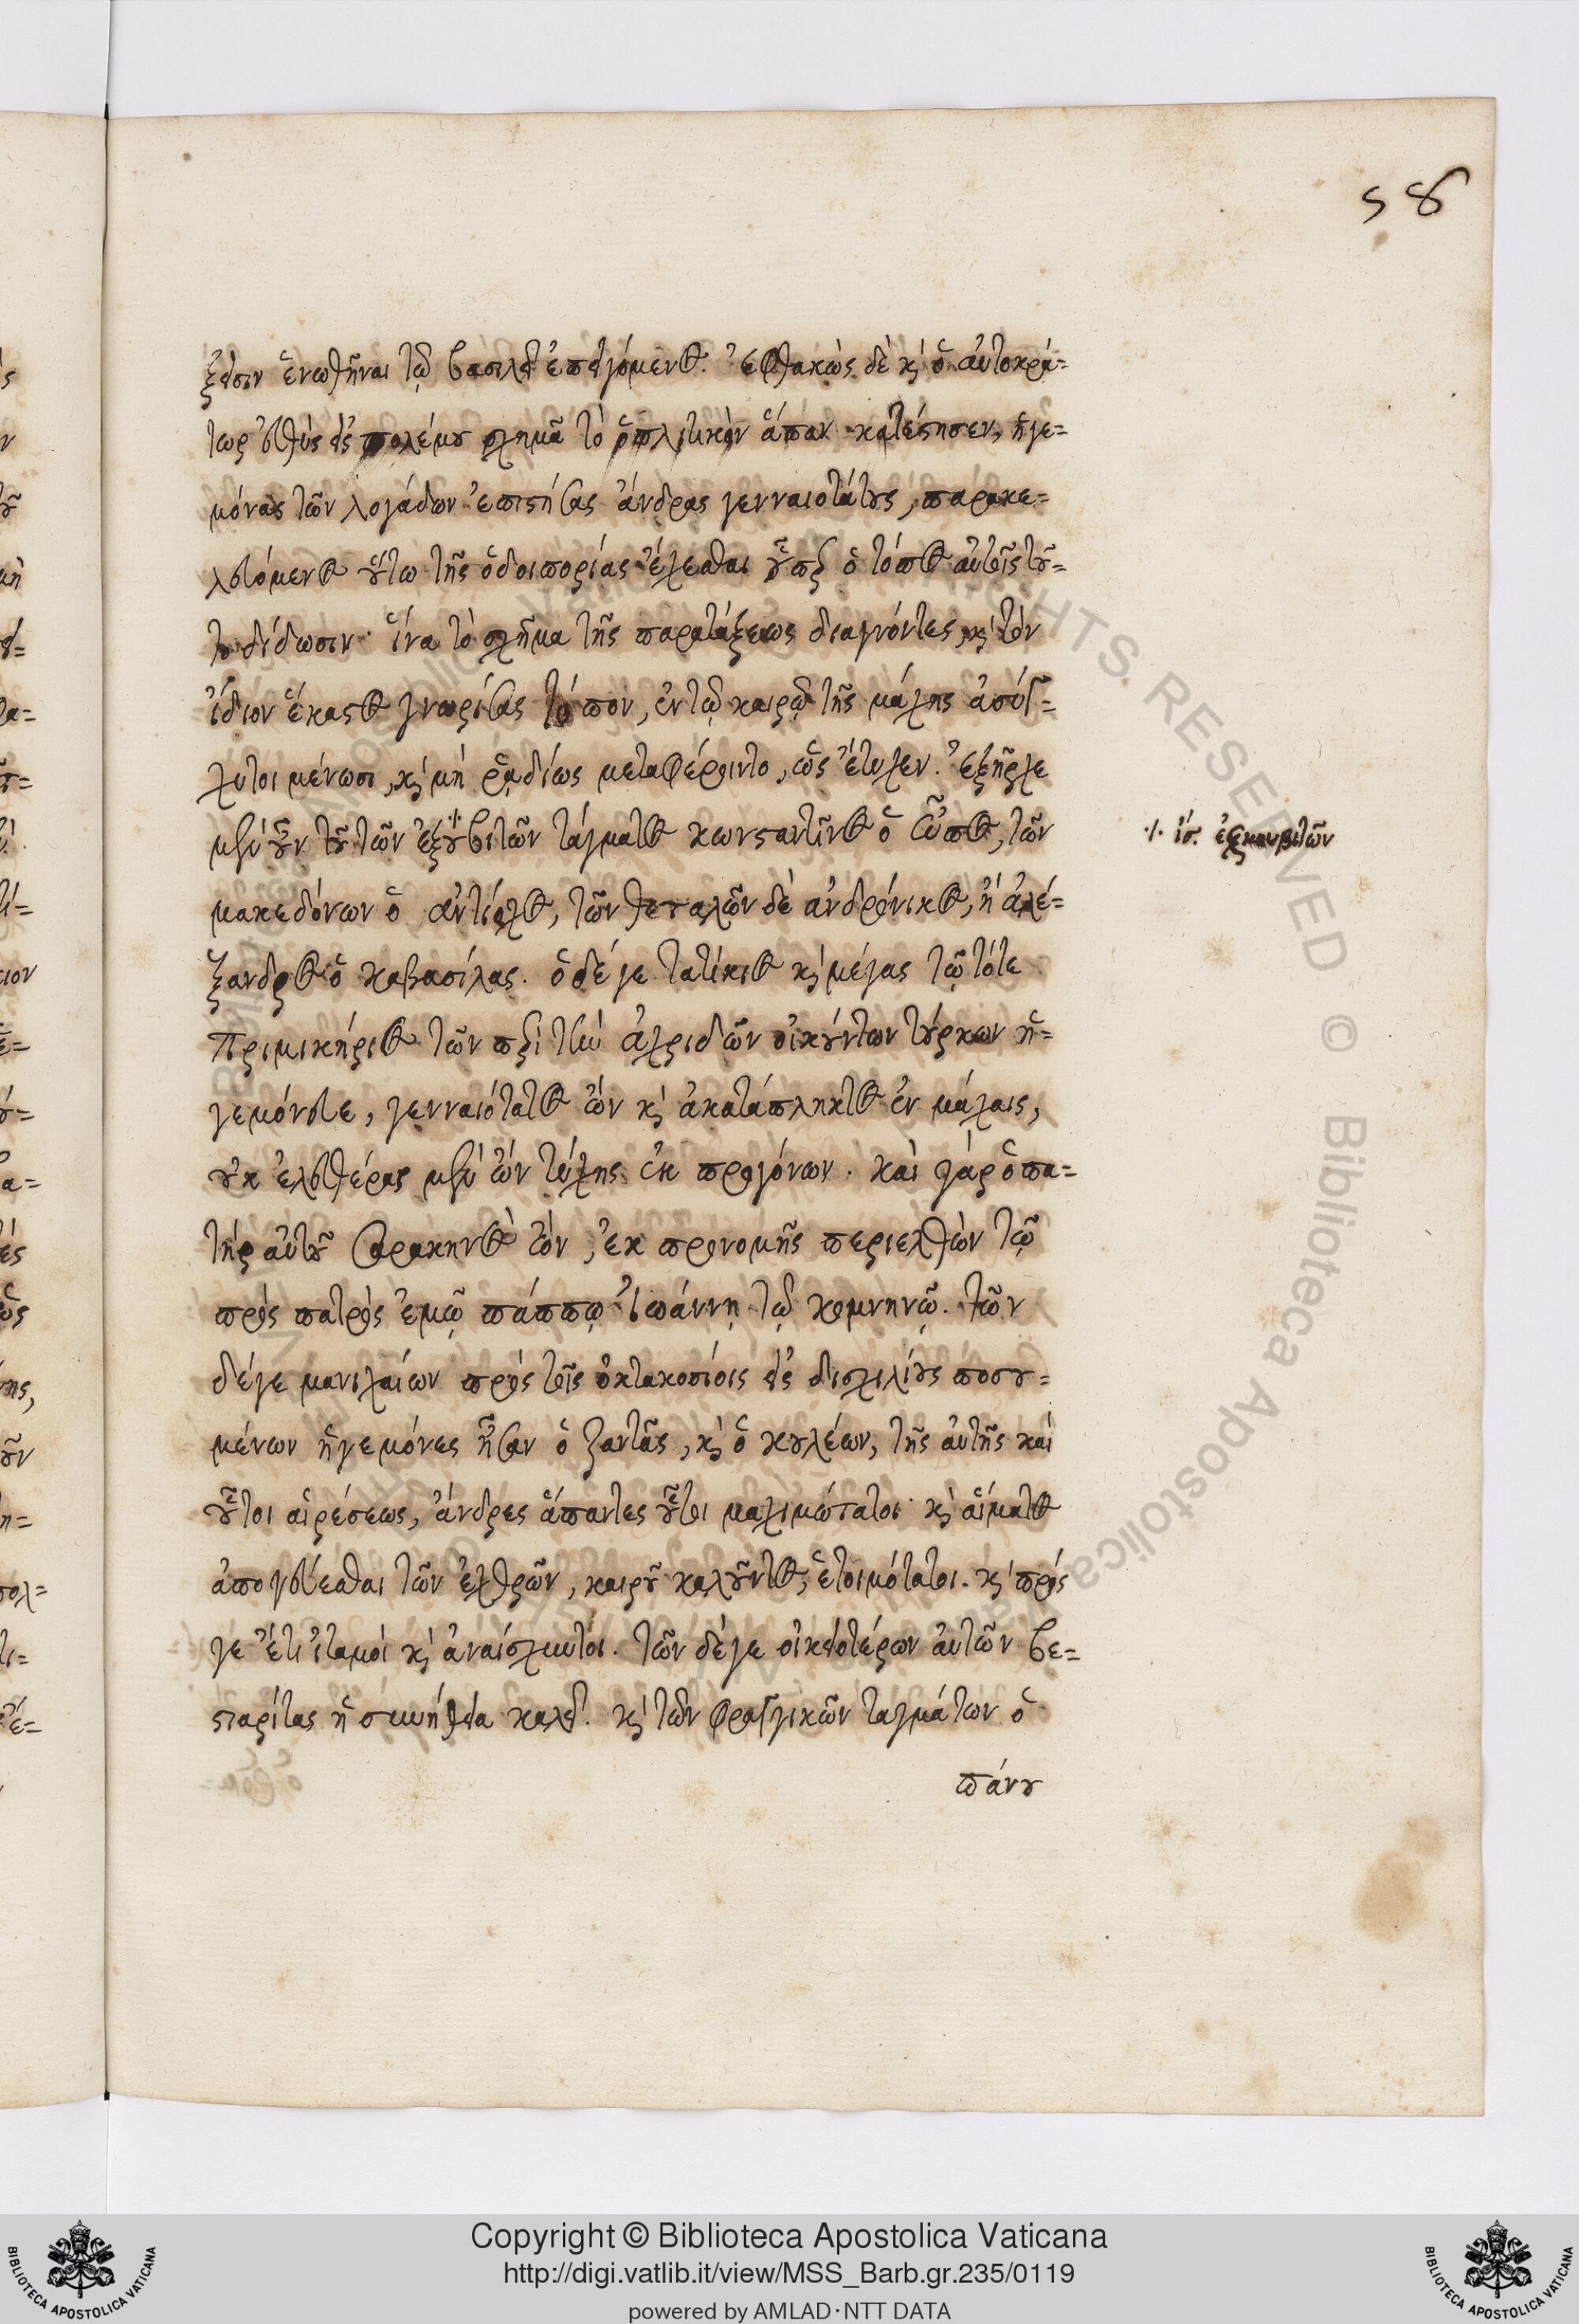 58
ξεσιν ἑνωθῆναι τῷ βασιλεῖ ἐπειγόμενος. ἐφθακὼς δὲ κὶ ὁ αὐτοκρά=
τωρ εὐθὺς εἰς πολέμου σχημα τὸ ὁπλιτικὸν ἅπαν κατέστησεν, ἡγε=
μόνας τῶν λογάδων ἐπιστήσας ἄνδρας γενναιοτάτους, παρακε=
λευόμενος οὕτω τῆς ὁδοιπορίας ἔχεσθαι οὗπερ ὁ τόπος αὐτοῖς τοῦ=
το δίδωσιν· ἵνα τὸ σχῆμα τῆς παρατάξεως διαγνόντες κὶ τὸν
ἴδιον ἕκαστος γνωρίσας τόπον, ἐν τῷ καιρῷ τῆς μάχης ἀσύγ=
χυτοι μένωσι, κὶ μὴ ῥᾳδίως μεταφέροιντο, ὡς ἔτυχεν. ἐξῆρχε
μὲν οὖν τοῦ τῶν ἐξουβιτῶν τάγματος κωνσταντῖνος ὁ ὦπος, τῶν
μακεδόνων ὁ ἀντίοχος, τῶν θετταλῶν δὲ ἀνδρόνικος, ἢ ἀλέ=
ξανδρος ὁ καβασίλας. ὁ δέ γε τατίκιος κὶ μέγας τῷ τότε
πριμικήριος τῶν περὶ τὴν ἀχριδῶν οἰκούντων τούρκων ἡ=
γεμόνευε, γενναιότατος ὢν κὶ ἀκατάπληκτος ἐν μάχαις,
οὐκ ἐλευθέρας μὲν ὢν τύχης ἐκ προγόνων. καὶ γάρ ὁ πα=
τὴρ αὐτοῦ σαρακηνὸς ὢν, ἐκ προνομῆς περιελθὼν τῷ
πρὸς πατρὸς ἐμῷ πάππῳ ἰωάννῃ τῷ κομνηνῷ. τῶν
δέ γε μανιχαίων πρὸς τοῖς ὀκτακοσίοις εἰς δισχιλίους ποσου=
μένων ἡγεμόνες ἦσαν ὁ ξαντᾶς, κὶ ὁ κουλέων, τῆς αὐτῆς καὶ
οὗτοι αἱρέσεως, ἄνδρες ἅπαντες οὗτοι μαχιμώτατοι κὶ αἵματος
ἀπογεύεσθαι τῶν ἐχθρῶν, καιροῦ καλοῦντος, ἑτοιμότατοι. κὶ πρός
γε ἔτι ἰταμοὶ κὶ ἀναίσχυντοι. τῶν δέ γε οἰκειοτέρων αὐτῶν βε=
στιαρίτας ἡ συνήθεια καλεῖ. κὶ τῶν φραγγικῶν ταγμάτων ὁ
πάνου
·/· ἴσ. ἐξκουβιτῶν
Copyright © Biblioteca Apostolica Vaticana
http://digi.vatlib.it/view/MSS_Barb.gr.235/0119
powered by AMLAD·NTT DATA
BIBLIOTECA APOSTOLICA VATICANA
BIBLIOTECA APOSTOLICA VATICANA